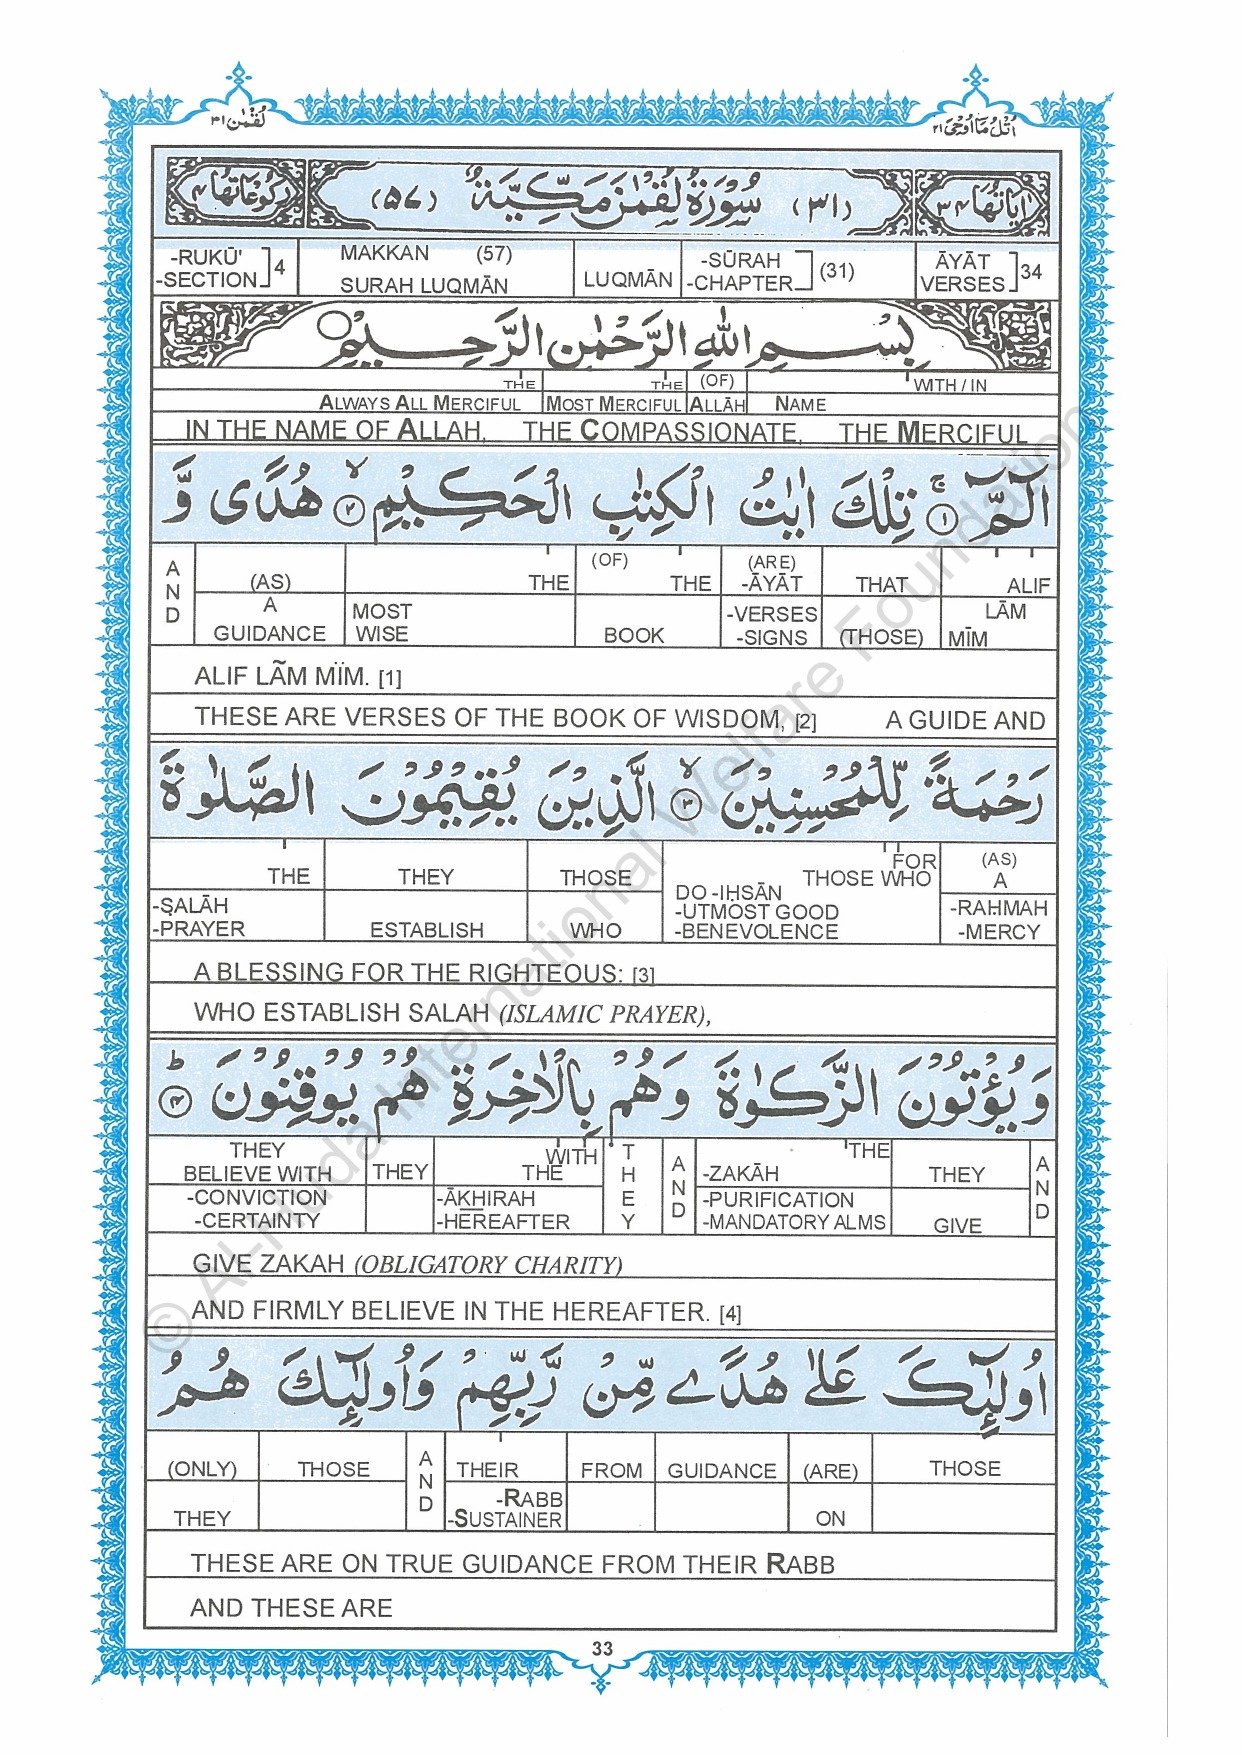 لُقْمٰن ٣١ اُتْلُ مَآ اُوْحِىَ ٢١
اٰیَاتُهَا ٣٤ (٣١) سُوْرَةُ لُقْمٰنَ مَكِّيَّةٌ (٥٧) رُكُوْعَاتُهَا ٤
-RUKŪ' -SECTION ] 4 MAKKAN (57) SURAH LUQMĀN LUQMĀN -SŪRAH -CHAPTER ] (31) ĀYĀT VERSES ] 34
بِسْمِ اللهِ الرَّحْمٰنِ الرَّحِيْمِ
THE THE (OF) WITH / IN
ALWAYS ALL MERCIFUL MOST MERCIFUL ALLĀH NAME
IN THE NAME OF ALLAH, THE COMPASSIONATE, THE MERCIFUL
الٓمّٓ ۚ ١ تِلْكَ اٰيٰتُ الْكِتٰبِ الْحَكِيْمِ ۙ ٢ هُدًى وَّ
AND (AS) THE (OF) THE (ARE) -ĀYĀT THAT ALIF
A GUIDANCE MOST WISE BOOK -VERSES -SIGNS (THOSE) LĀM MĪM
ALIF LÃM MÏM. [1]
THESE ARE VERSES OF THE BOOK OF WISDOM, [2] A GUIDE AND
رَحْمَةً لِّلْمُحْسِنِيْنَ ۙ ٣ الَّذِيْنَ يُقِيْمُوْنَ الصَّلٰوةَ
THE THEY THOSE FOR THOSE WHO (AS) A
-ṢALĀH -PRAYER ESTABLISH WHO DO -IḤSĀN -UTMOST GOOD -BENEVOLENCE -RAḤMAH -MERCY
A BLESSING FOR THE RIGHTEOUS: [3]
WHO ESTABLISH SALAH (ISLAMIC PRAYER),
وَيُؤْتُوْنَ الزَّكٰوةَ وَهُمْ بِالْاٰخِرَةِ هُمْ يُوْقِنُوْنَ ؕ ٤
THEY BELIEVE WITH THEY WITH THE THEY AND THE -ZAKĀH THEY AND
-CONVICTION -CERTAINTY -ĀKHIRAH -HEREAFTER -PURIFICATION -MANDATORY ALMS GIVE
GIVE ZAKAH (OBLIGATORY CHARITY)
AND FIRMLY BELIEVE IN THE HEREAFTER. [4]
اُولٰٓئِكَ عَلٰى هُدًى مِّنْ رَّبِّهِمْ وَاُولٰٓئِكَ هُمُ
(ONLY) THOSE AND THEIR FROM GUIDANCE (ARE) THOSE
THEY -RABB -SUSTAINER ON
THESE ARE ON TRUE GUIDANCE FROM THEIR RABB
AND THESE ARE
33
© Al-Huda International Welfare Foundation